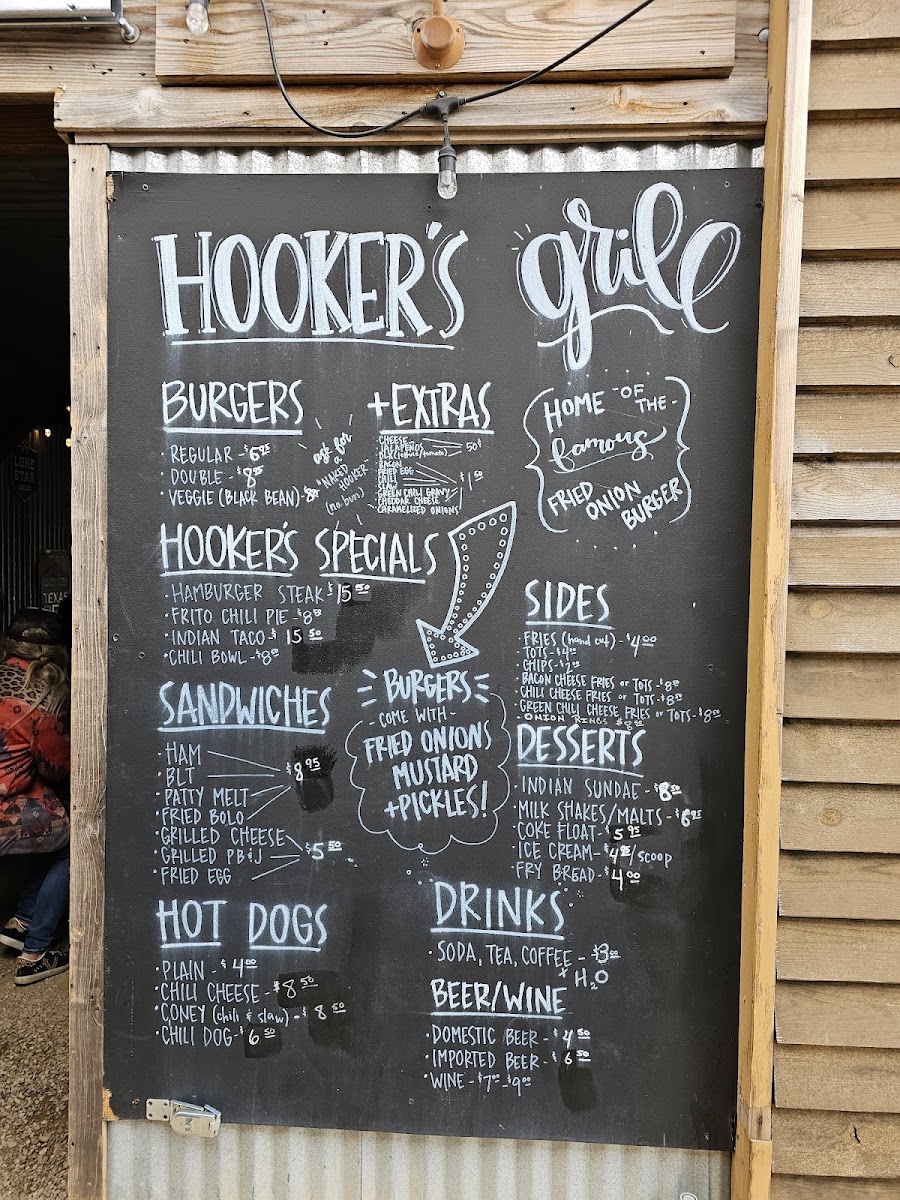 HOOKER'S grill
BURGERS
· REGULAR - $6.95
· DOUBLE - $8.95
· VEGGIE (BLACK BEAN) -
ask for
a
"NAKED
HOOKER"
(no bun)
+EXTRAS
CHEESE
JALAPEÑOS
50¢
BACON
FRIED EGG
CHILI
SLAW
GREEN CHILI GRAVY
CHEDDAR CHEESE
CARAMELIZED ONIONS
$1.50
HOME OF THE
famous
FRIED
ONION
BURGER
HOOKER'S SPECIALS
· HAMBURGER STEAK - $15.50
· FRITO CHILI PIE - $8.50
· INDIAN TACO - $15.50
· CHILI BOWL - $8.50
BURGERS
- COME WITH -
FRIED ONIONS
MUSTARD
+PICKLES!
SANDWICHES
· HAM
· BLT
· PATTY MELT
· FRIED BOLO
$8.95
· GRILLED CHEESE
· GRILLED PB&J
· FRIED EGG
$5.50
HOT DOGS
· PLAIN - $4.00
· CHILI CHEESE - $8.50
· CONEY (chili & slaw) - $8.50
· CHILI DOG - $6.50
SIDES
· FRIES (hand cut) - $4.00
· TOTS - $4.00
· CHIPS - $2.00
· BACON CHEESE FRIES or TOTS - $8.50
· CHILI CHEESE FRIES or TOTS - $8.50
· GREEN CHILI CHEESE FRIES or TOTS - $8.50
- ONION RINGS
DESSERTS
· INDIAN SUNDAE - $8.50
· MILK SHAKES/MALTS - $6.95
· COKE FLOAT - $5.95
· ICE CREAM - /SCOOP
· FRY BREAD - $4.00
DRINKS
· SODA, TEA, COFFEE - $3.00
+ H2O
BEER/WINE
· DOMESTIC BEER - $4.50
· IMPORTED BEER - $6.50
· WINE - $7.00-$9.00
LONE
STAR
TEXAS